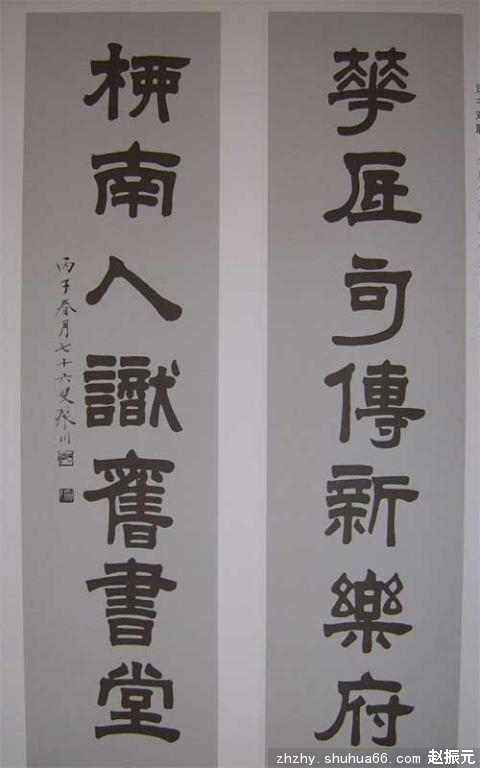 華匠句傳新樂府
柄南人識舊書堂
丙子春月七十六叟張川
zhzhy.shuhua66.com 赵振元